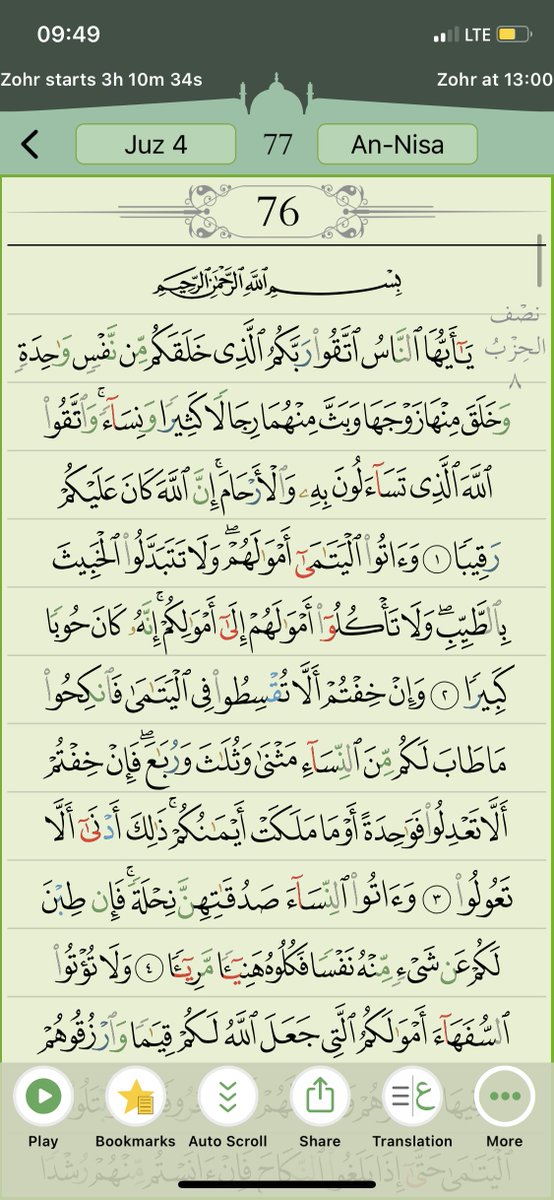 09:49
LTE
Zohr starts 3h 10m 34s
Zohr at 13:00
Juz 4
77
An-Nisa
76
بِسْمِ ٱللَّهِ ٱلرَّحْمَٰنِ ٱلرَّحِيمِ
نصْف
الحِزْبُ
٨
يَـٰٓأَيُّهَا ٱلنَّاسُ ٱتَّقُوا۟ رَبَّكُمُ ٱلَّذِى خَلَقَكُم مِّن نَّفْسٍ وَٰحِدَةٍ
وَخَلَقَ مِنْهَا زَوْجَهَا وَبَثَّ مِنْهُمَا رِجَالًا كَثِيرًا وَنِسَآءً ۚ وَٱتَّقُوا۟
ٱللَّهَ ٱلَّذِى تَسَآءَلُونَ بِهِۦ وَٱلْأَرْحَامَ ۚ إِنَّ ٱللَّهَ كَانَ عَلَيْكُمْ
رَقِيبًا ١ وَءَاتُوا۟ ٱلْيَتَـٰمَىٰٓ أَمْوَٰلَهُمْ ۖ وَلَا تَتَبَدَّلُوا۟ ٱلْخَبِيثَ
بِٱلطَّيِّبِ ۖ وَلَا تَأْكُلُوٓا۟ أَمْوَٰلَهُمْ إِلَىٰٓ أَمْوَٰلِكُمْ ۚ إِنَّهُۥ كَانَ حُوبًا
كَبِيرًا ٢ وَإِنْ خِفْتُمْ أَلَّا تُقْسِطُوا۟ فِى ٱلْيَتَـٰمَىٰ فَٱنكِحُوا۟
مَا طَابَ لَكُم مِّنَ ٱلنِّسَآءِ مَثْنَىٰ وَثُلَـٰثَ وَرُبَـٰعَ ۖ فَإِنْ خِفْتُمْ
أَلَّا تَعْدِلُوا۟ فَوَٰحِدَةً أَوْ مَا مَلَكَتْ أَيْمَـٰنُكُمْ ۚ ذَٰلِكَ أَدْنَىٰٓ أَلَّا
تَعُولُوا۟ ٣ وَءَاتُوا۟ ٱلنِّسَآءَ صَدُقَـٰتِهِنَّ نِحْلَةً ۚ فَإِن طِبْنَ
لَكُمْ عَن شَىْءٍ مِّنْهُ نَفْسًا فَكُلُوهُ هَنِيٓـًٔا مَّرِيٓـًٔا ٤ وَلَا تُؤْتُوا۟
ٱلسُّفَهَآءَ أَمْوَٰلَكُمُ ٱلَّتِى جَعَلَ ٱللَّهُ لَكُمْ قِيَـٰمًا وَٱرْزُقُوهُمْ
Play
Bookmarks
Auto Scroll
Share
Translation
More
ٱلْيَتَـٰمَىٰ حَتَّىٰٓ إِذَا بَلَغُوا۟ ٱلنِّكَاحَ فَإِنْ ءَانَسْتُم مِّنْهُمْ رُشْدًا